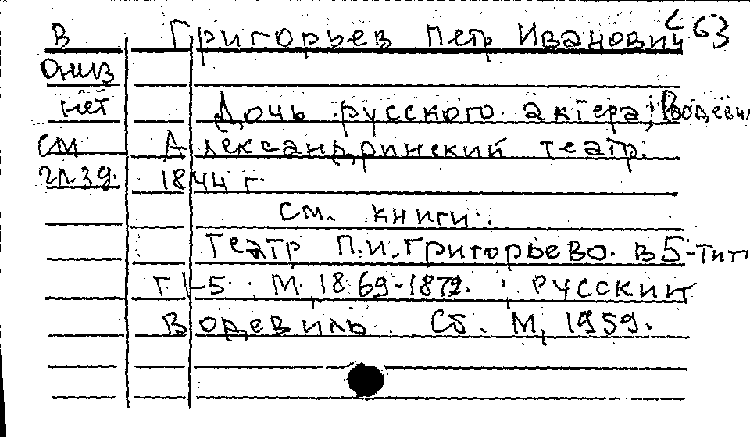 В Григорьев Петр Иванович С 63
Ониз
нет Дочь русского актера; Водевил
см Александринский театр.
гл.зд. 1844 г.
см. книги:
Театр П.И.Григорьево. в 5-тит
Т1-5 М, 1869-1872. ; Русский
Водевиль Сб. М, 1959.